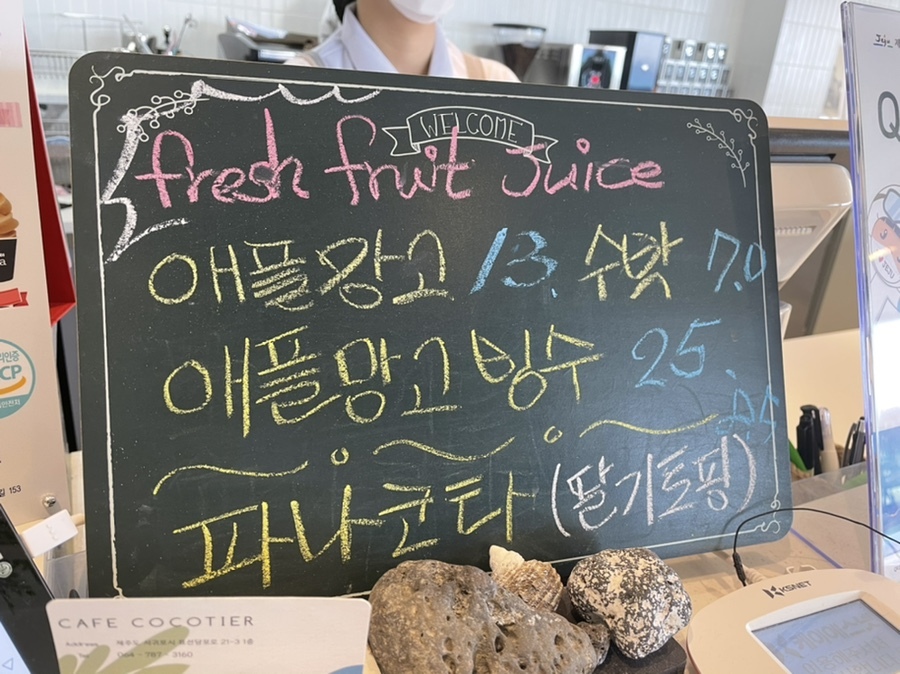 WELCOME
fresh fruit Juice
애플망고 13. 수박 7.0
애플망고빙수 25.
파나코타 (딸기토핑)
CAFE COCOTIER
Address
064 - 787 - 3160
KSNET
153
CP
Q